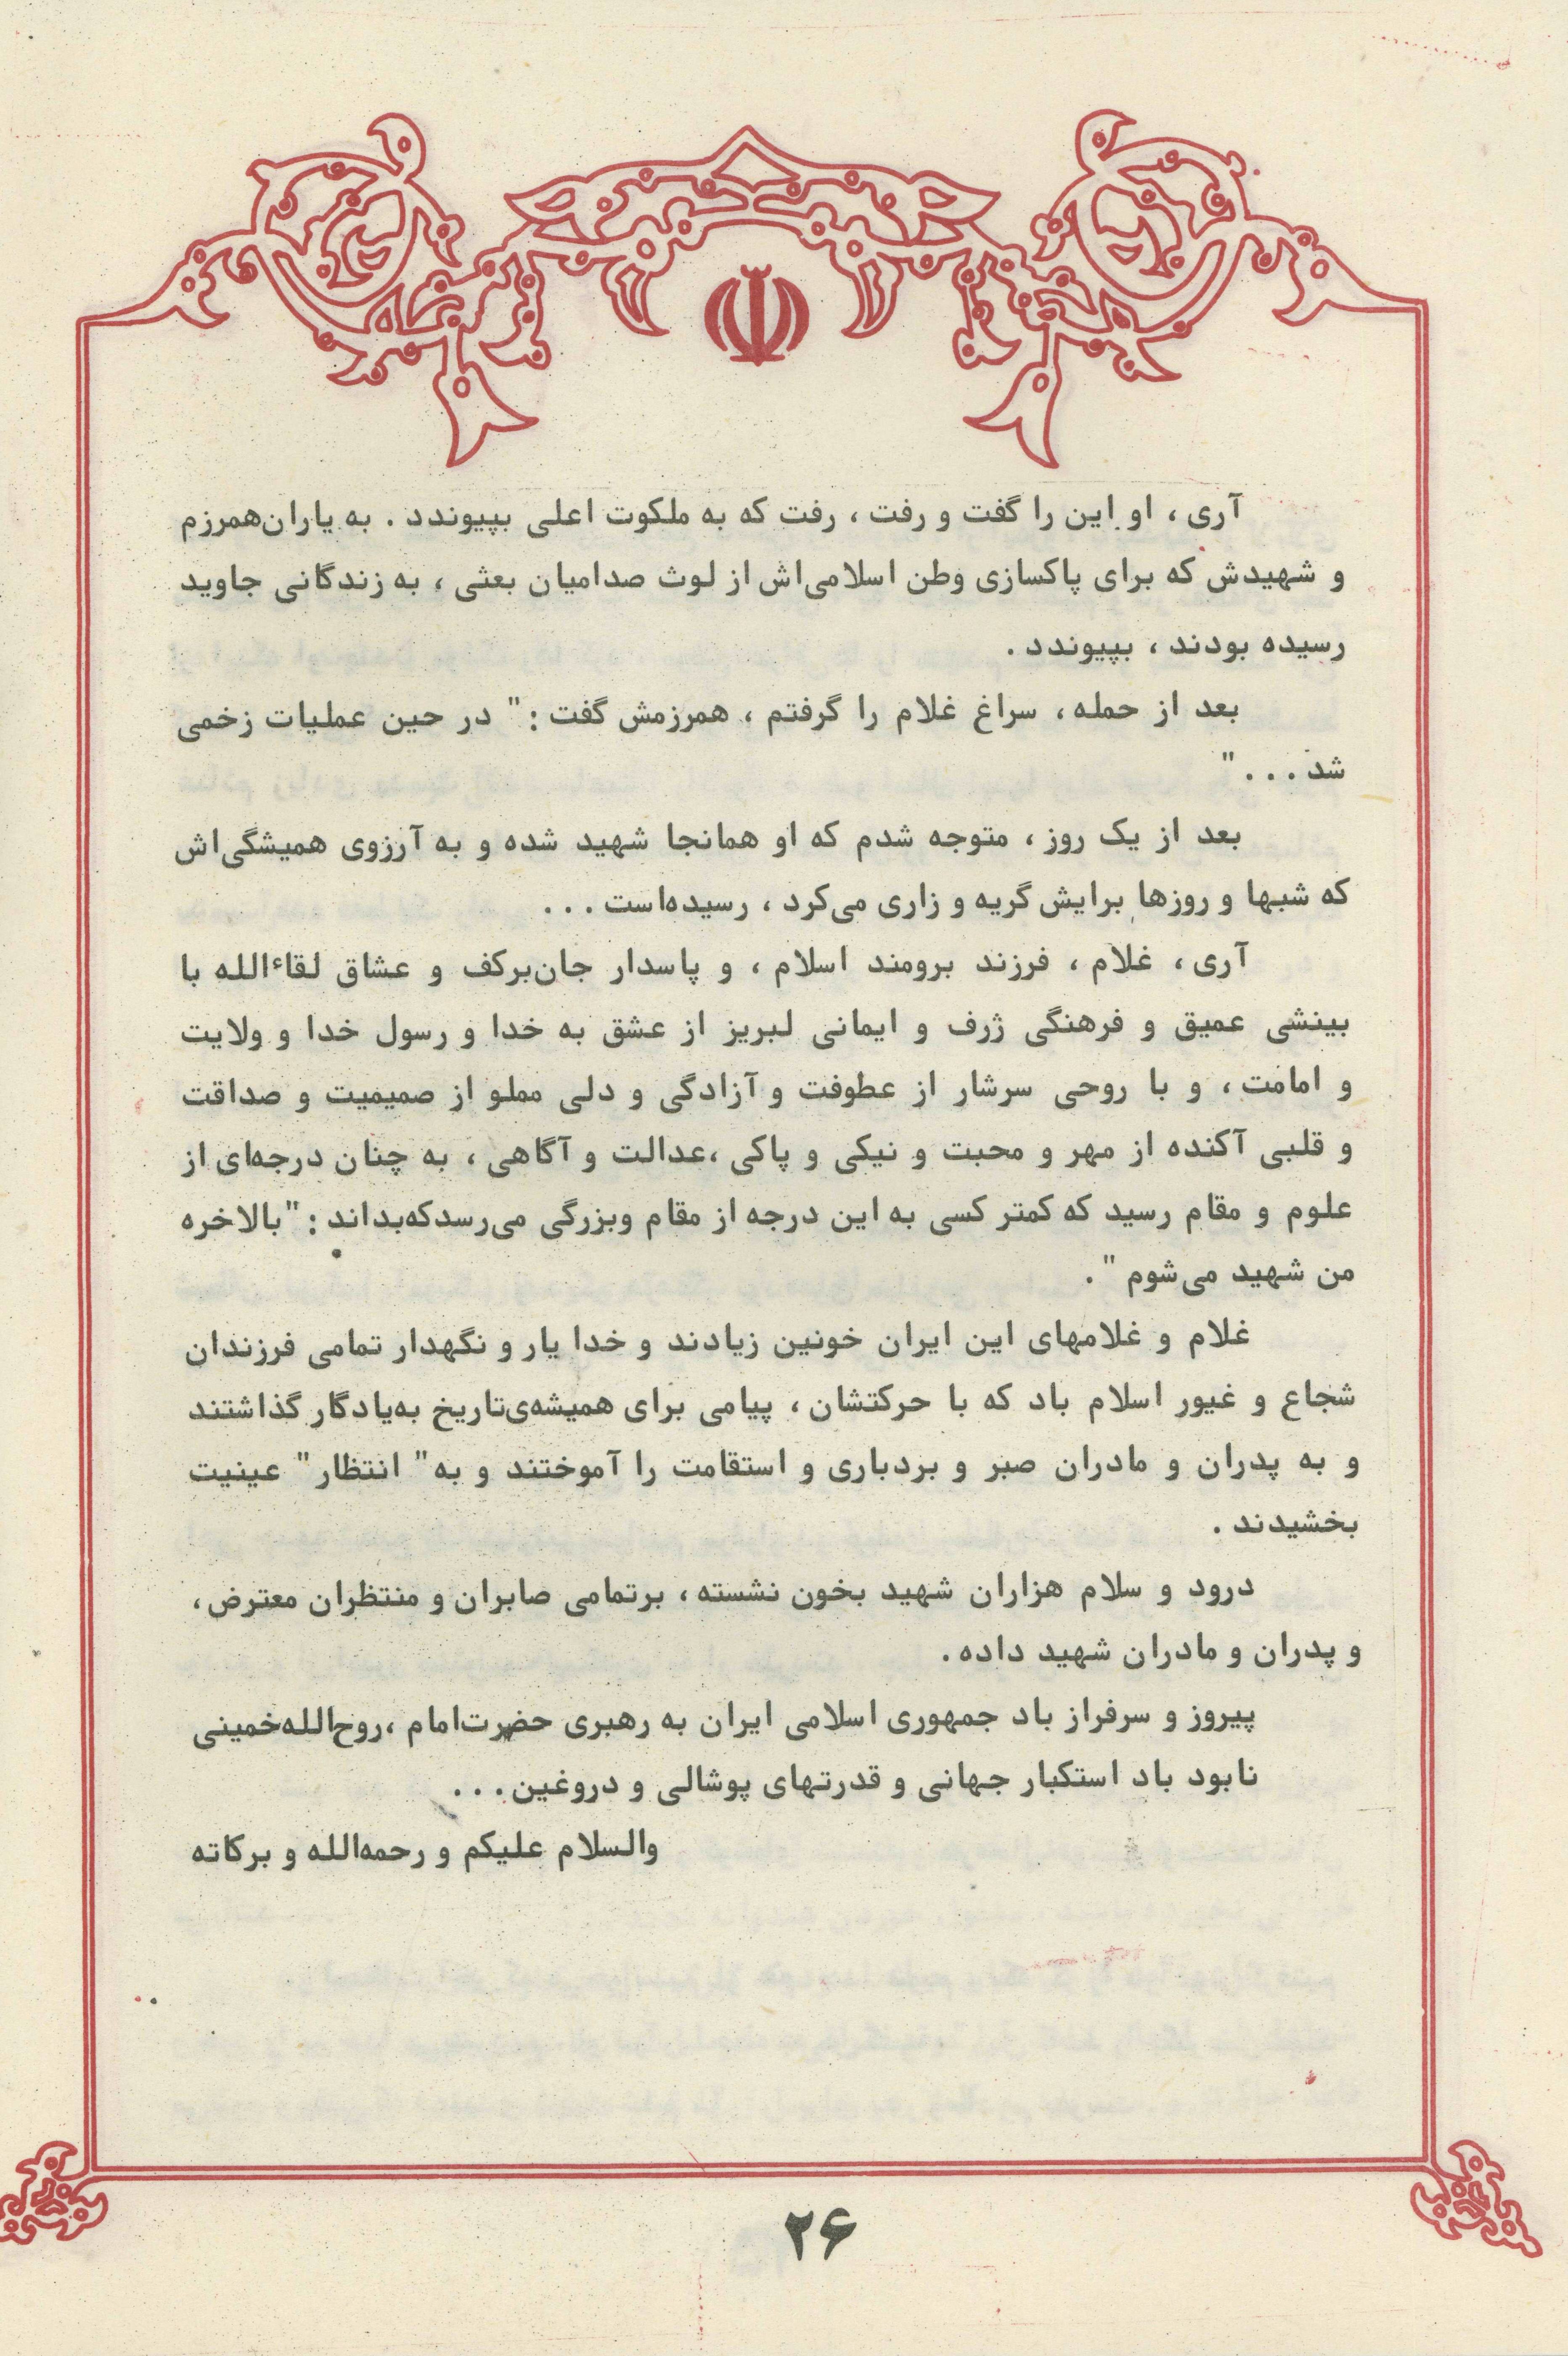 آری ، او این را گفت و رفت ، رفت که به ملکوت اعلی بپیوندد . به یاران‌همرزم
و شهیدش که برای پاکسازی وطن اسلامی‌اش از لوث صدامیان بعثی ، به زندگانی جاوید
رسیده بودند ، بپیوندد .
بعد از حمله ، سراغ غلام را گرفتم ، همرزمش گفت : " در حین عملیات زخمی
شد . . . "
بعد از یک روز ، متوجه شدم که او همانجا شهید شده و به آرزوی همیشگی‌اش
که شبها و روزها برایش گریه و زاری می‌کرد ، رسیده‌است . . .
آری ، غلام ، فرزند برومند اسلام ، و پاسدار جان‌برکف و عشاق لقاءالله با
بینشی عمیق و فرهنگی ژرف و ایمانی لبریز از عشق به خدا و رسول خدا و ولایت
و امامت ، و با روحی سرشار از عطوفت و آزادگی و دلی مملو از صمیمیت و صداقت
و قلبی آکنده از مهر و محبت و نیکی و پاکی ،عدالت و آگاهی ، به چنان درجه‌ای از
علوم و مقام رسید که کمتر کسی به این درجه از مقام وبزرگی می‌رسدکه‌بداند : "بالاخره
من شهید می‌شوم " .
غلام و غلامهای این ایران خونین زیادند و خدا یار و نگهدار تمامی فرزندان
شجاع و غیور اسلام باد که با حرکتشان ، پیامی برای همیشه‌ی‌تاریخ به‌یادگار گذاشتند
و به پدران و مادران صبر و بردباری و استقامت را آموختند و به " انتظار " عینیت
بخشیدند .
درود و سلام هزاران شهید بخون نشسته ، برتمامی صابران و منتظران معترض ،
و پدران و مادران شهید داده .
پیروز و سرفراز باد جمهوری اسلامی ایران به رهبری حضرت‌امام ،روح‌الله‌خمینی
نابود باد استکبار جهانی و قدرتهای پوشالی و دروغین . . .
والسلام علیکم و رحمه‌الله و برکاته
۲۶